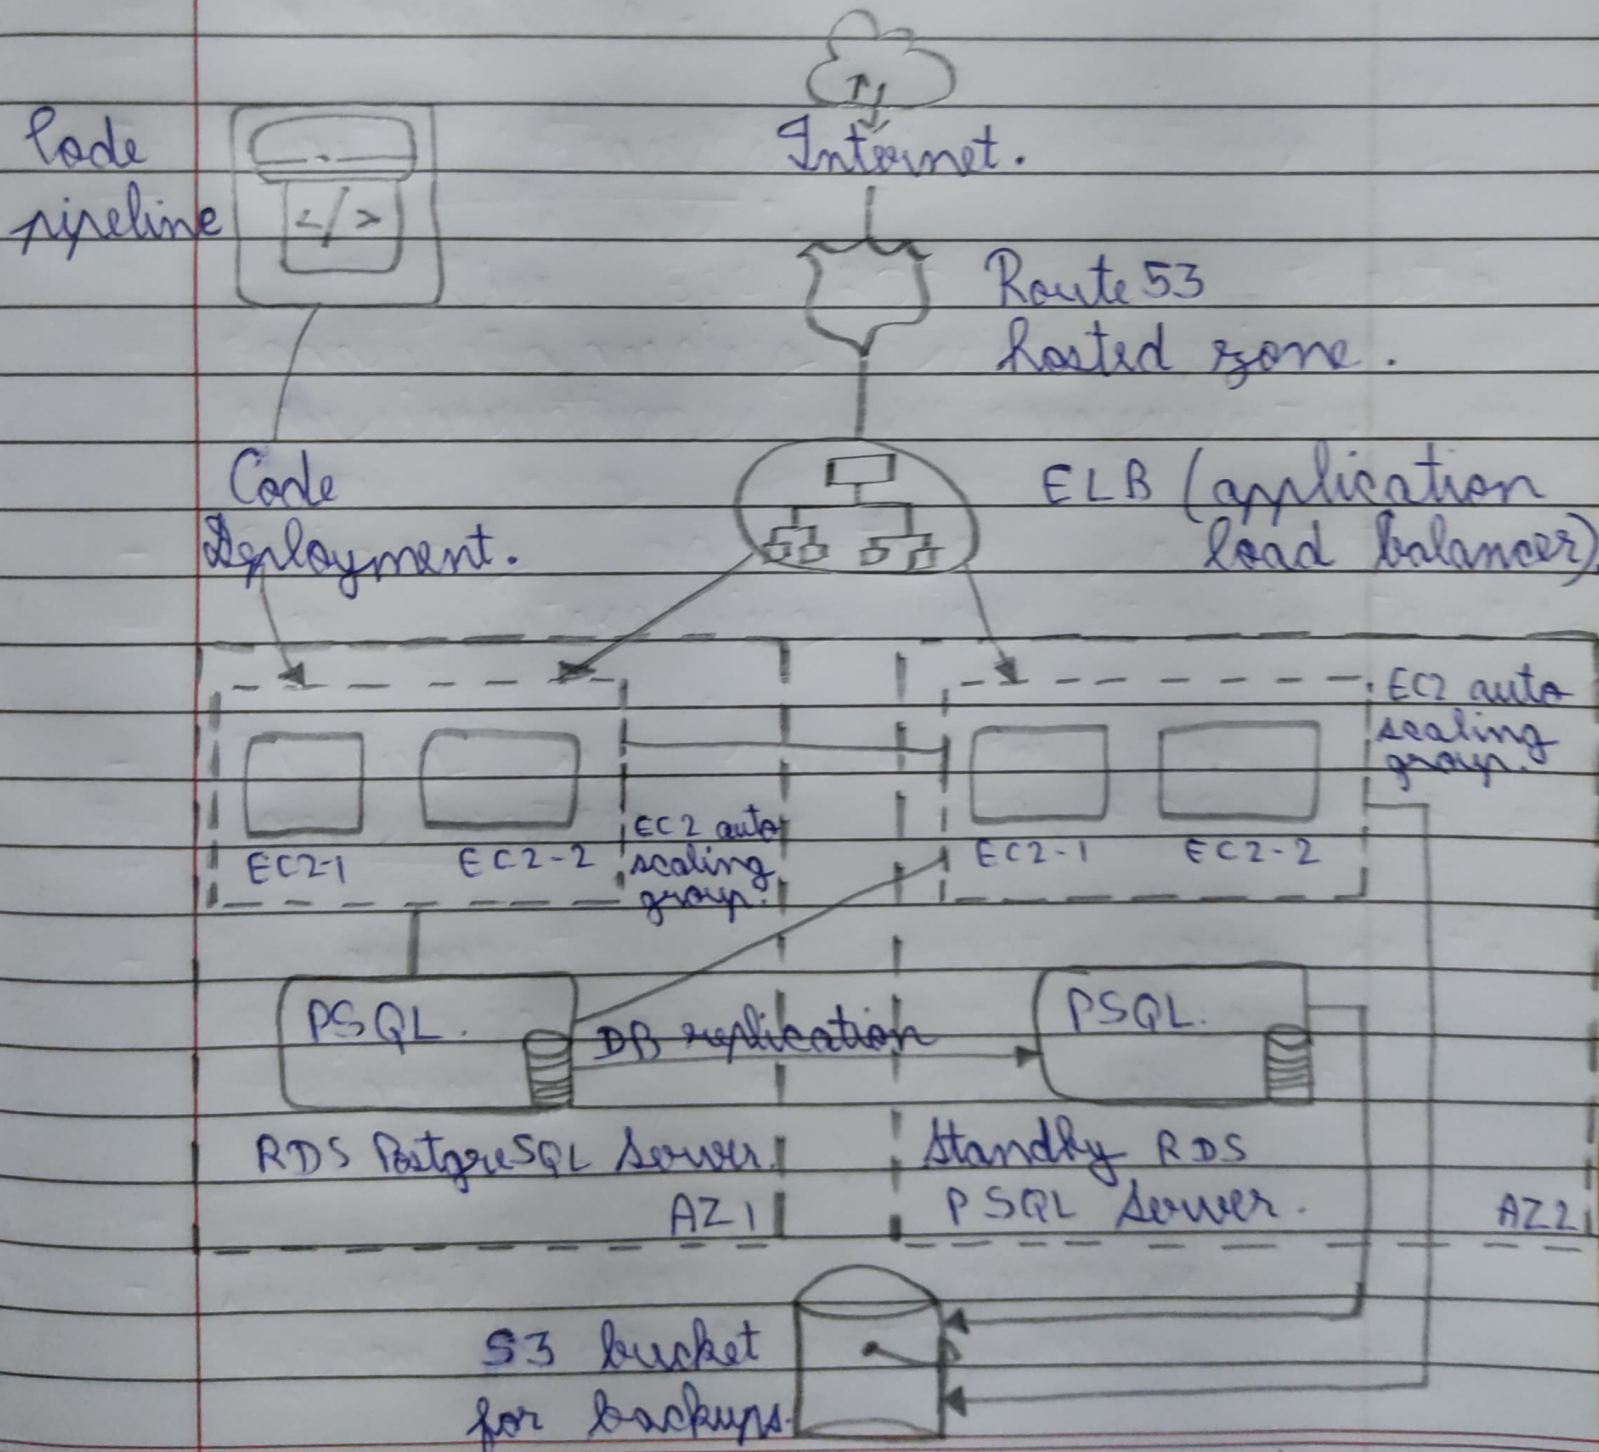 Code
pipeline
</>
Internet.
Route 53
hosted zone.
Code
Deployment.
ELB (application
load balancer)
EC2-1
EC2-2
EC2 auto
scaling
group.
EC2-1
EC2-2
EC2 auto
scaling
group.
PSQL.
DB replication
PSQL.
RDS PostgreSQL Server.
AZ1
Standby RDS
PSQL Server.
AZ2
S3 bucket
for backups.